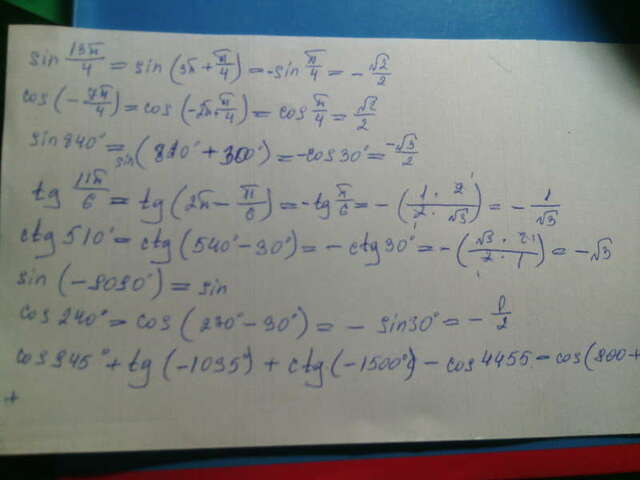 sin 13π/4 = sin (3π + π/4) = -sin π/4 = - √2/2
cos (- 7π/4) = cos (-2π+ π/4) = cos π/4 = √2/2
sin 840° = sin (810° + 30°) = -cos 30° = -√3/2
tg 11π/6 = tg (2π - π/6) = -tg π/6 = - (1 · 2 / 2 · √3) = - 1/√3
ctg 510° = ctg (540° - 30°) = - ctg 30° = - (√3 · 2 / 2 · 1) = - √3
sin (-8030°) = sin
cos 240° = cos (270° - 30°) = - sin 30° = - 1/2
cos 945° + tg (-1035°) + ctg (-1500°) - cos 4455 = cos (900 +
+